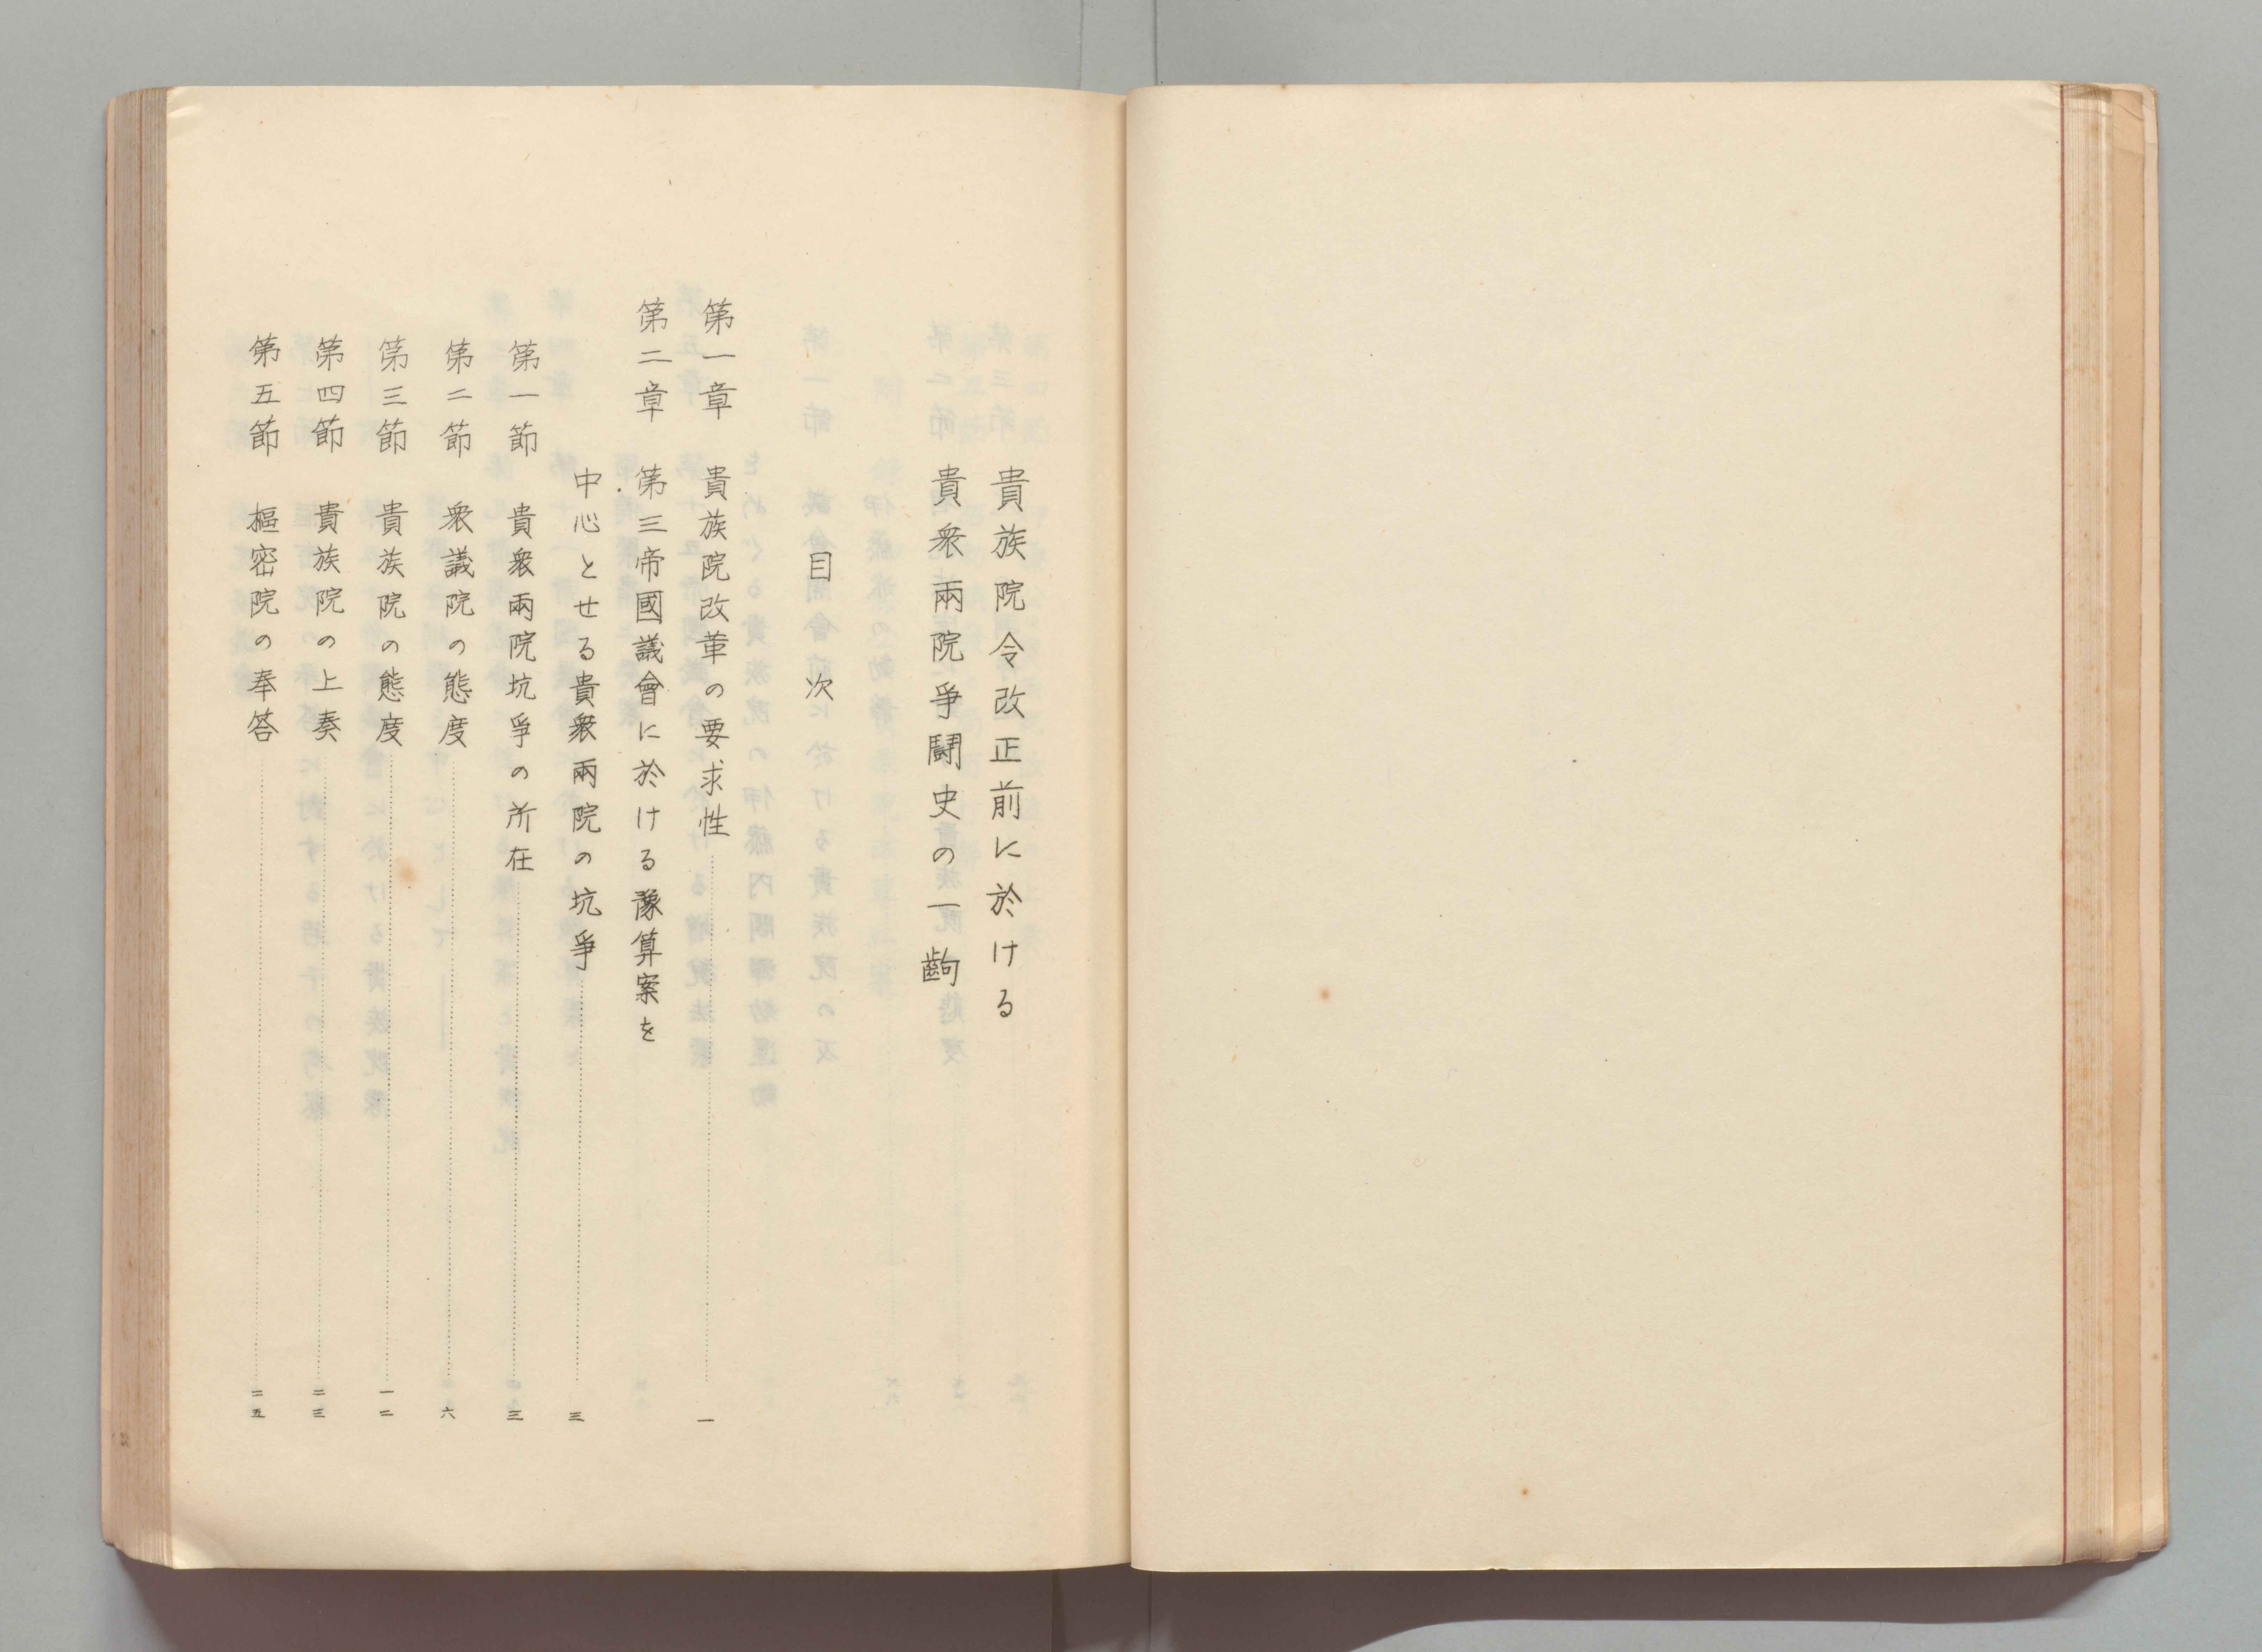 貴族院令改正前に於ける
貴衆兩院爭鬪史の一齣
目次
第一章 貴族院改革の要求性 一
第二章 第三帝國議會に於ける豫算案を
中心とせる貴衆兩院の坑爭 三
第一節 貴衆兩院坑爭の所在 三
第二節 衆議院の態度 六
第三節 貴族院の態度 一二
第四節 貴族院の上奏 二三
第五節 樞密院の奉答 二五